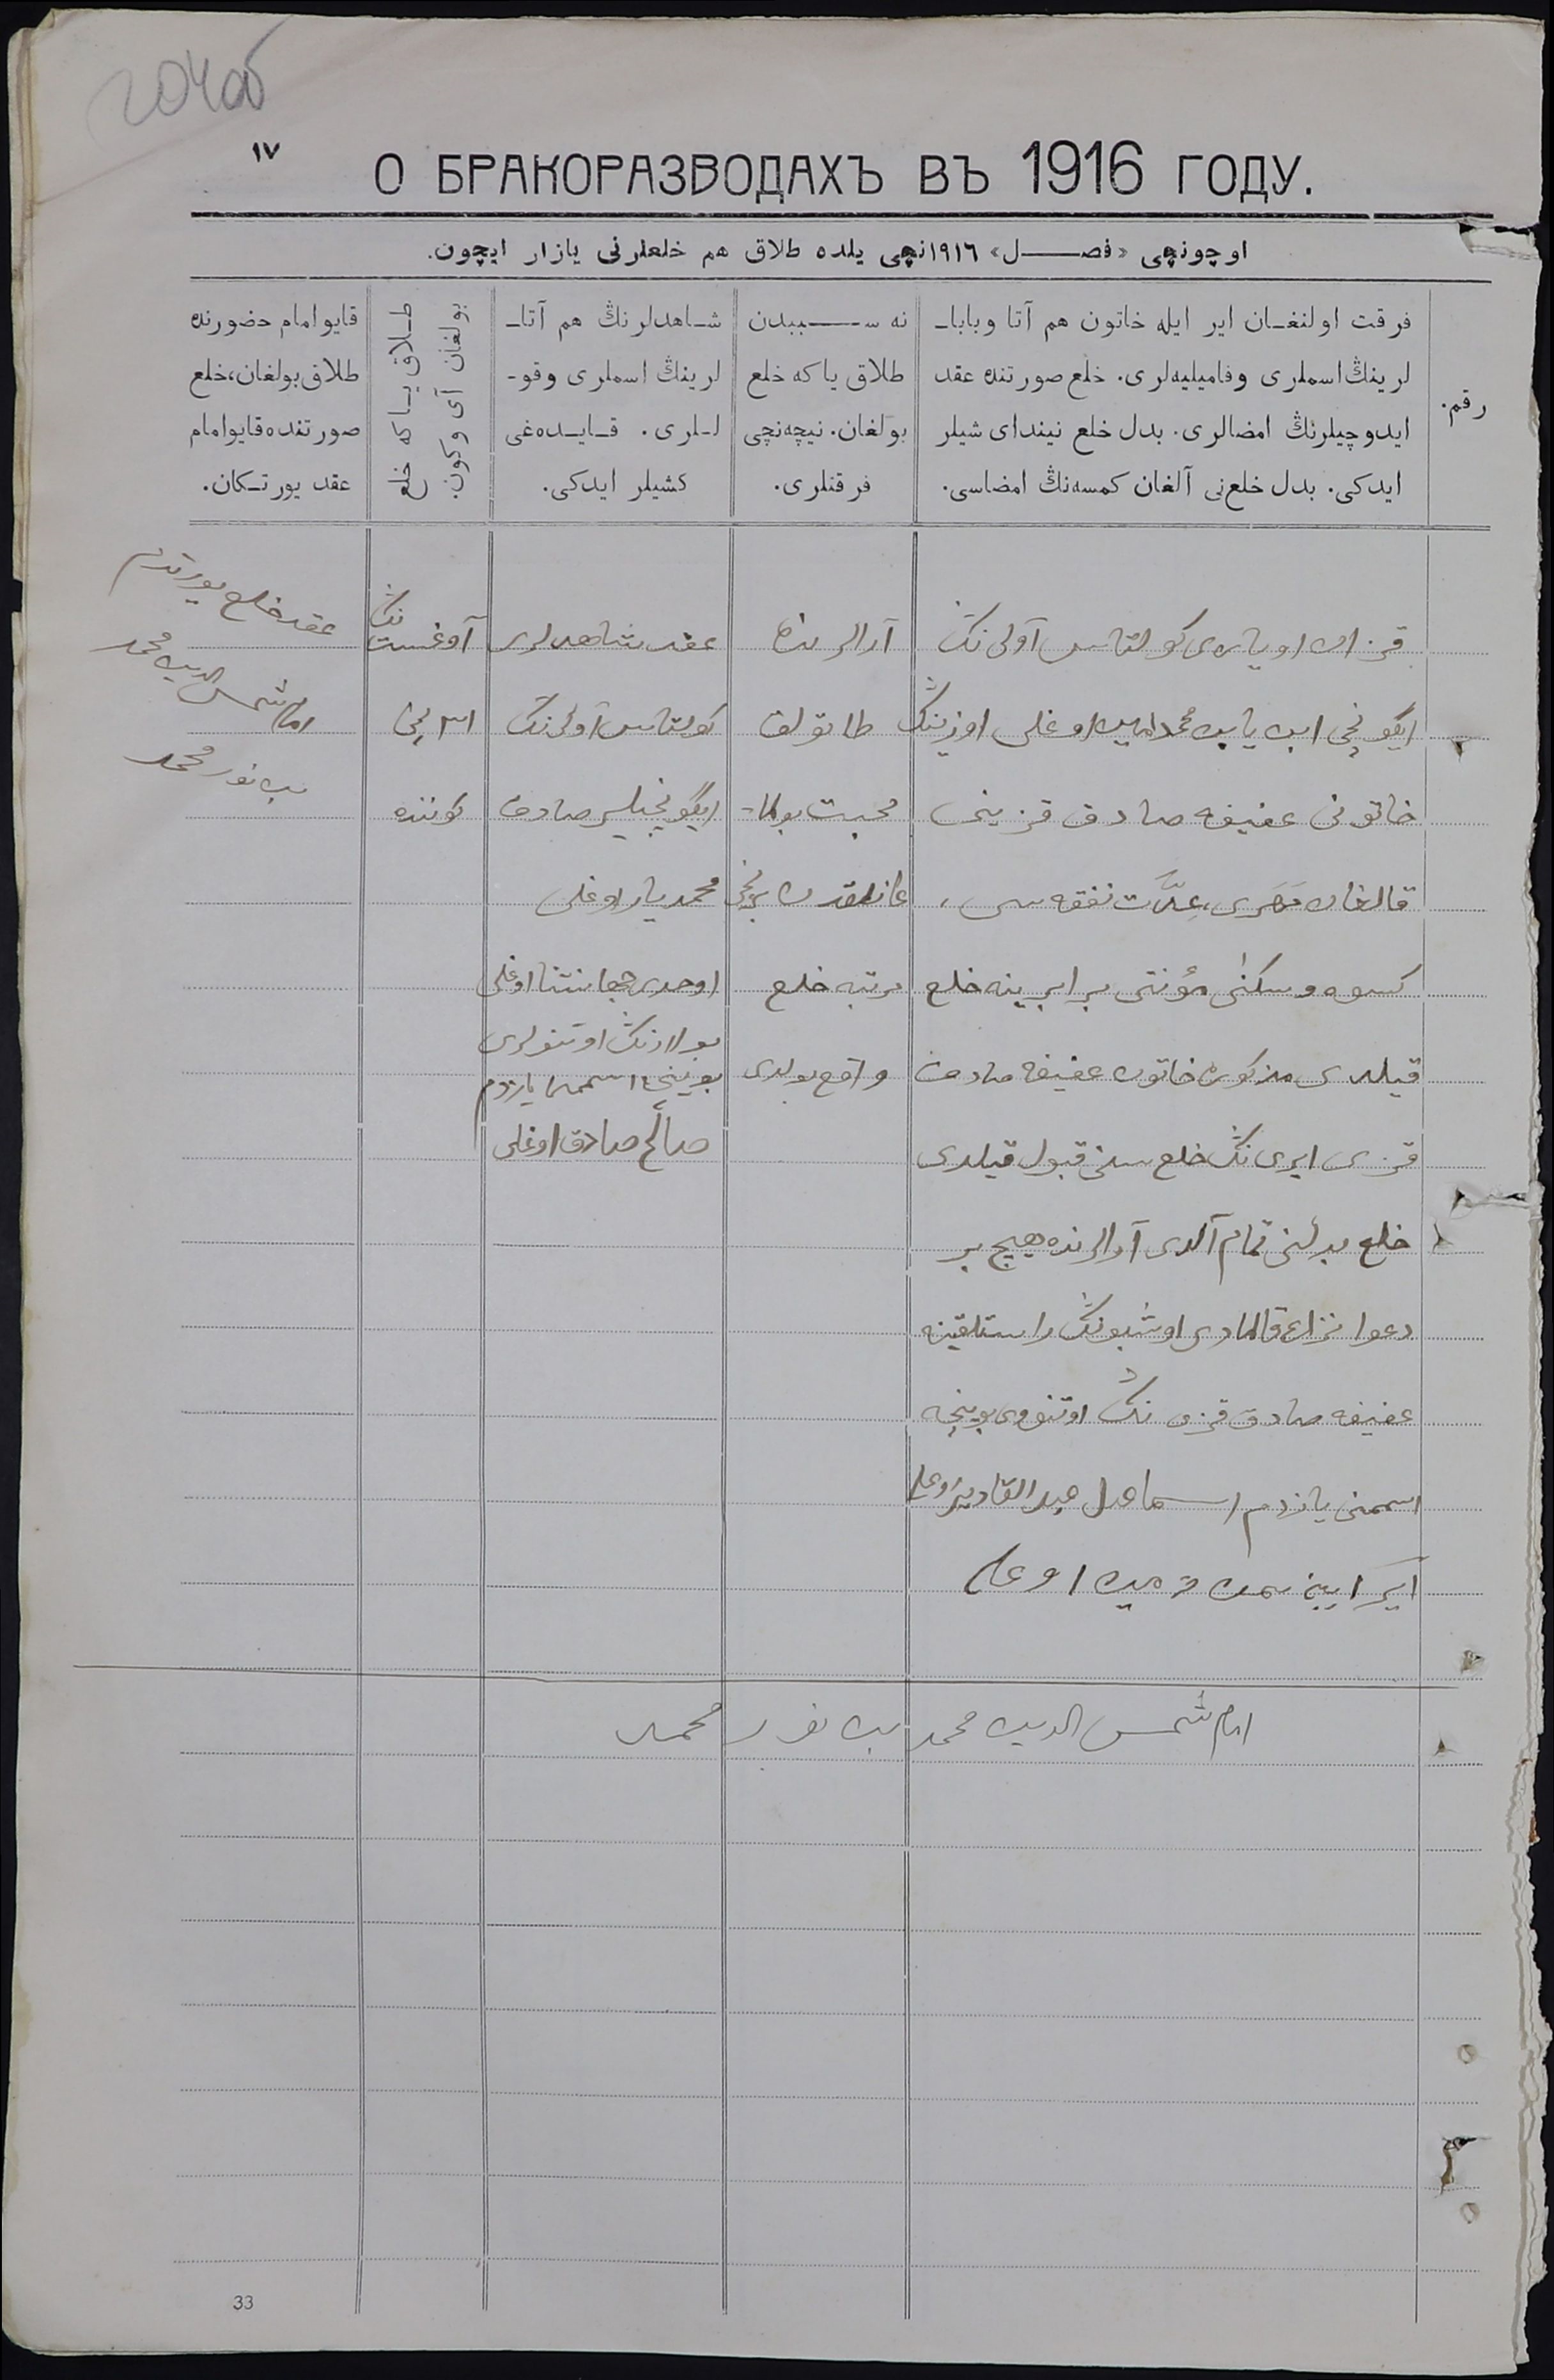 204об
١٧
О БРАКОРАЗВОДАХЪ ВЪ 1916 ГОДУ.
اوچونچی «فصــل» ١٩١٦نچی یلده طلاق هم خلعلرنی یازار ایچون.
رقم.
فرقت اولنغـان ایر ایله خاتون هم آتا وبابا۔
لرینڭ اسملری وفامیلیه‌لری. خلع صورتنده عقد
ایدوچیلرنڭ امضالری. بدل خلع نیندای شیلر
ایدكی. بدل خلع‌نی آلغان كمسه‌نڭ امضاسی.
نه ســببدن
طلاق یاكه خلع
بولغان. نیچه‌نچی
فرقتلری.
شـاهدلرنڭ هم آتا۔
لرینڭ اسملری وقو۔
لـلری. قـایـده‌غی
كشیلر ایدكی.
طـلاق یـاكه خلع
بولغان آی وكون.
قایو امام حضورنده
طلاق بولغان، خلع
صورتنده قایوامام
عقد یورتـكان.
كولتاس آولی‌نڭ
محمدامین اوغلی اوزینڭ
خاتونی عفیفه صادق قزینی
قالغان مَهَری، عِدَّت نفقه سی،
كسوه وسكنی مؤنتی برابرینه خلع
قیلدی مذكوره خاتون عفیفه صادق
قزی ایری‌نڭ خلع سنی قبول قیلدی
خلع بدلنی تمام آلدی آرالرنده هیچ بر
دعوا نزاع قالمادی اوشبونڭ راستلقینه
عفیفه صادق قزی نڭ اوتنوی بوینچه
اسممنی یازدم اسماعیل عبدالقادیر اوغلی
آرالرنده
طاتولق
محبت بولما۔
غانلقدن برنچی
مرتبه خلع
واقع بولدی
عقد شاهدلری
كولتاس آولی‌نڭ
ایگونچیلر صادق
محمدیار اوغلی
اوغلی
بولارنڭ اوتنولری
بوینچه اسممنی یازدم
صالح صادق اوغلی
آوغست نڭ
٣١ نچی
كوننده
عقد خلع یورتدم
امام شمس الدین محمد
بن نور محمد
امام شمس الدین محمد بن نور محمد
33